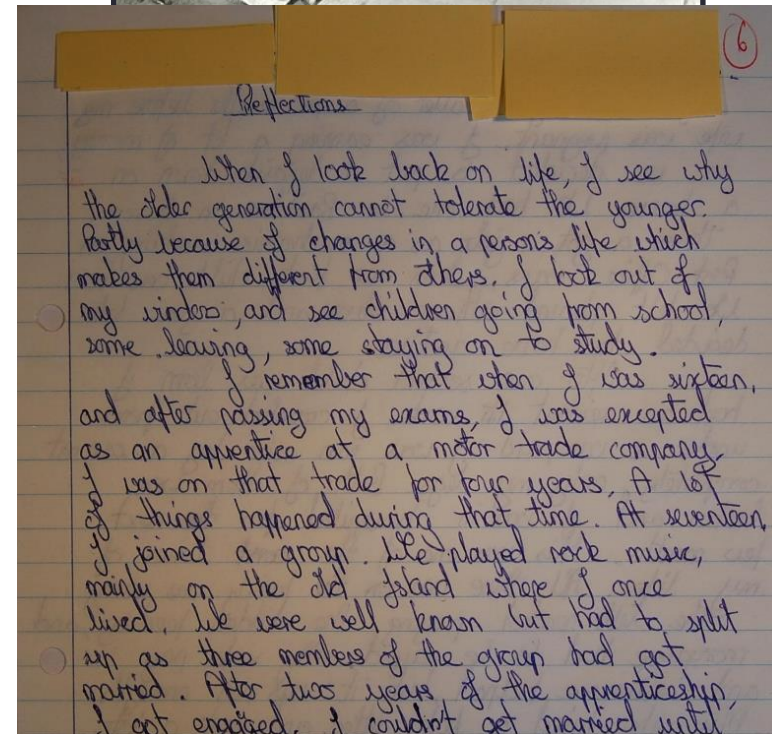 6
Reflections
When I look back on life, I see why
the older generation cannot tolerate the younger.
Partly because of changes in a person's life which
makes them different from others. I look out of
my window, and see children going from school,
some leaving, some staying on to study.
I remember that when I was sixteen,
and after passing my exams, I was excepted
as an apprentice at a motor trade company.
I was on that trade for four years. A lot
of things happened during that time. At seventeen,
I joined a group. We played rock music,
mainly on the old Island where I once
lived. We were well known but had to split
up as three members of the group had got
married. After two years of the apprenticeship,
I got engaged. I couldn't get married until